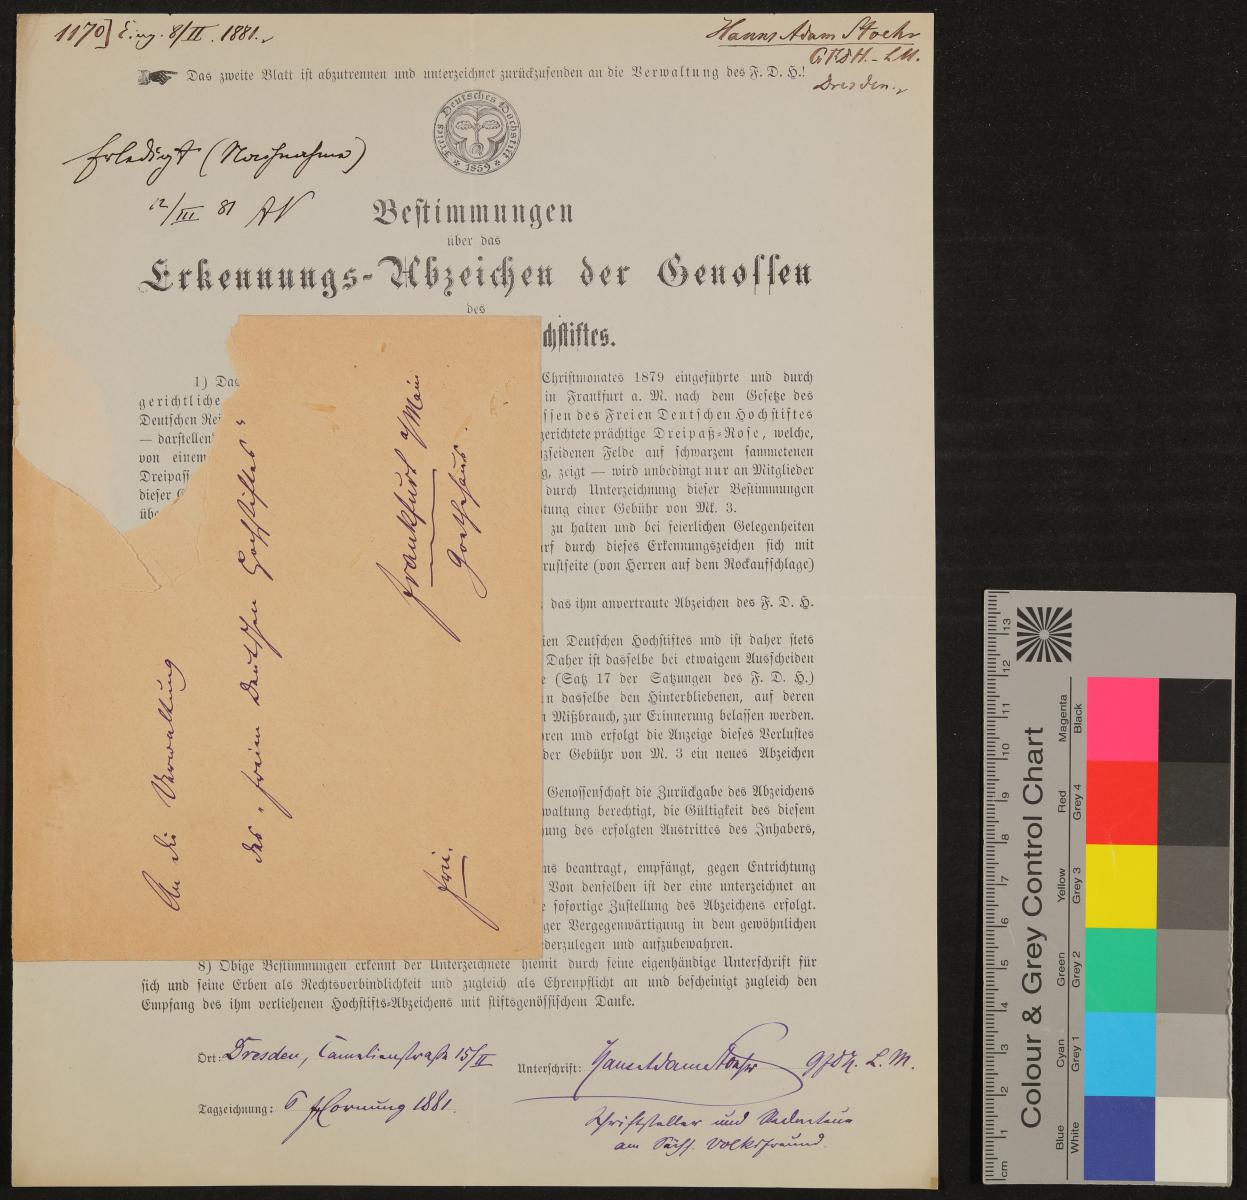 1170] Eing. 8/II. 1881.
Hanns Adam Stoehr
GFDH. - LM.
Dresden.
Das zweite Blatt ist abzutrennen und unterzeichnet zurückzusenden an die Verwaltung des F. D. H.!
Freies Deutsches Hochstift
* 1859 *
Erledigt (Nachnahme)
12/III 81 AV
Bestimmungen
über das
Erkennungs-Abzeichen der Genossen
des
chstiftes.
1) Das
Christmonates 1879 eingeführte und durch
gerichtliche
in Frankfurt a. M. nach dem Gesetze des
Deutschen Rei
ssen des Freien Deutschen Hochstiftes
— darstellen
gerichtete prächtige Dreipaß-Rose, welche,
von einem
zseidenen Felde auf schwarzem sammetenen
Dreipass
g, zeigt — wird unbedingt nur an Mitglieder
dieser G
durch Unterzeichnung dieser Bestimmungen
übe
tung einer Gebühr von Mk. 3.
zu halten und bei feierlichen Gelegenheiten
rf durch dieses Erkennungszeichen sich mit
rustseite (von Herren auf dem Rockaufschlage)
das ihm anvertraute Abzeichen des F. D. H.
ien Deutschen Hochstiftes und ist daher stets
Daher ist dasselbe bei etwaigem Ausscheiden
e (Satz 17 der Satzungen des F. D. H.)
n dasselbe den Hinterbliebenen, auf deren
Mißbrauch, zur Erinnerung belassen werden.
ren und erfolgt die Anzeige dieses Verlustes
der Gebühr von M. 3 ein neues Abzeichen
Genossenschaft die Zurückgabe des Abzeichens
waltung berechtigt, die Gültigkeit des diesem
ung des erfolgten Austrittes des Inhabers,
ns beantragt, empfängt, gegen Entrichtung
Von denselben ist der eine unterzeichnet an
e sofortige Zustellung des Abzeichens erfolgt.
ger Vergegenwärtigung in dem gewöhnlichen
derzulegen und aufzubewahren.
8) Obige Bestimmungen erkennt der Unterzeichnete hiemit durch seine eigenhändige Unterschrift für
sich und seine Erben als Rechtsverbindlichkeit und zugleich als Ehrenpflicht an und bescheinigt zugleich den
Empfang des ihm verliehenen Hochstifts-Abzeichens mit stiftsgenössischem Danke.
Ort: Dresden, Camelienstraße 15/II
Unterschrift: Hans Adam Stoehr GFDH. L. M.
Tagzeichnung: 6 Hornung 1881.
Schriftsteller und Redacteur
am Sächs. Volksfreund.
An die Verwaltung
des "freien Deutschen Hochstiftes"
Frankfurt a/Main
Goethehaus.
frei.
Colour & Grey Control Chart
Blue Cyan Green Yellow Red Magenta
White Grey 1 Grey 2 Grey 3 Grey 4 Black
cm 1 2 3 4 5 6 7 8 9 10 11 12 13